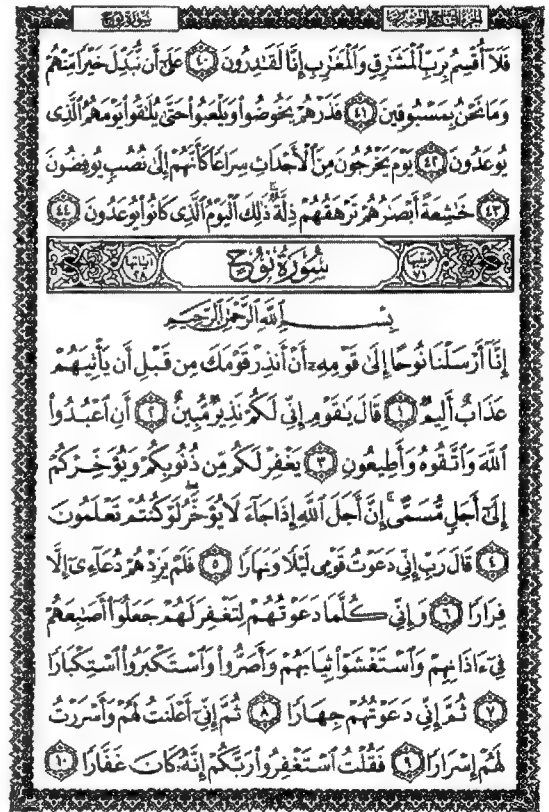 الجزء التاسع والعشرون
سورة نوح
فَلَآ أُقْسِمُ بِرَبِّ ٱلْمَشَٰرِقِ وَٱلْمَغَٰرِبِ إِنَّا لَقَٰدِرُونَ ٤٠ عَلَىٰٓ أَن نُّبَدِّلَ خَيْرًا مِّنْهُمْ
وَمَا نَحْنُ بِمَسْبُوقِينَ ٤١ فَذَرْهُمْ يَخُوضُوا۟ وَيَلْعَبُوا۟ حَتَّىٰ يُلَٰقُوا۟ يَوْمَهُمُ ٱلَّذِى
يُوعَدُونَ ٤٢ يَوْمَ يَخْرُجُونَ مِنَ ٱلْأَجْدَاثِ سِرَاعًا كَأَنَّهُمْ إِلَىٰ نُصُبٍ يُوفِضُونَ
٤٣ خَٰشِعَةً أَبْصَٰرُهُمْ تَرْهَقُهُمْ ذِلَّةٌ ۚ ذَٰلِكَ ٱلْيَوْمُ ٱلَّذِى كَانُوا۟ يُوعَدُونَ ٤٤
ترتيبها ٧١ سُورَةُ نُوحٍ آياتها ٢٨
بِسْمِ ٱللَّهِ ٱلرَّحْمَٰنِ ٱلرَّحِيمِ
إِنَّآ أَرْسَلْنَا نُوحًا إِلَىٰ قَوْمِهِۦٓ أَنْ أَنذِرْ قَوْمَكَ مِن قَبْلِ أَن يَأْتِيَهُمْ
عَذَابٌ أَلِيمٌ ١ قَالَ يَٰقَوْمِ إِنِّى لَكُمْ نَذِيرٌ مُّبِينٌ ٢ أَنِ ٱعْبُدُوا۟
ٱللَّهَ وَٱتَّقُوهُ وَأَطِيعُونِ ٣ يَغْفِرْ لَكُم مِّن ذُنُوبِكُمْ وَيُؤَخِّرْكُمْ
إِلَىٰٓ أَجَلٍ مُّسَمًّى ۚ إِنَّ أَجَلَ ٱللَّهِ إِذَا جَآءَ لَا يُؤَخَّرُ ۖ لَوْ كُنتُمْ تَعْلَمُونَ
٤ قَالَ رَبِّ إِنِّى دَعَوْتُ قَوْمِى لَيْلًا وَنَهَارًا ٥ فَلَمْ يَزِدْهُمْ دُعَآءِىٓ إِلَّا
فِرَارًا ٦ وَإِنِّى كُلَّمَا دَعَوْتُهُمْ لِتَغْفِرَ لَهُمْ جَعَلُوٓا۟ أَصَٰبِعَهُمْ
فِىٓ ءَاذَانِهِمْ وَٱسْتَغْشَوْا۟ ثِيَابَهُمْ وَأَصَرُّوا۟ وَٱسْتَكْبَرُوا۟ ٱسْتِكْبَارًا
٧ ثُمَّ إِنِّى دَعَوْتُهُمْ جِهَارًا ٨ ثُمَّ إِنِّىٓ أَعْلَنتُ لَهُمْ وَأَسْرَرْتُ
لَهُمْ إِسْرَارًا ٩ فَقُلْتُ ٱسْتَغْفِرُوا۟ رَبَّكُمْ إِنَّهُۥ كَانَ غَفَّارًا ١٠